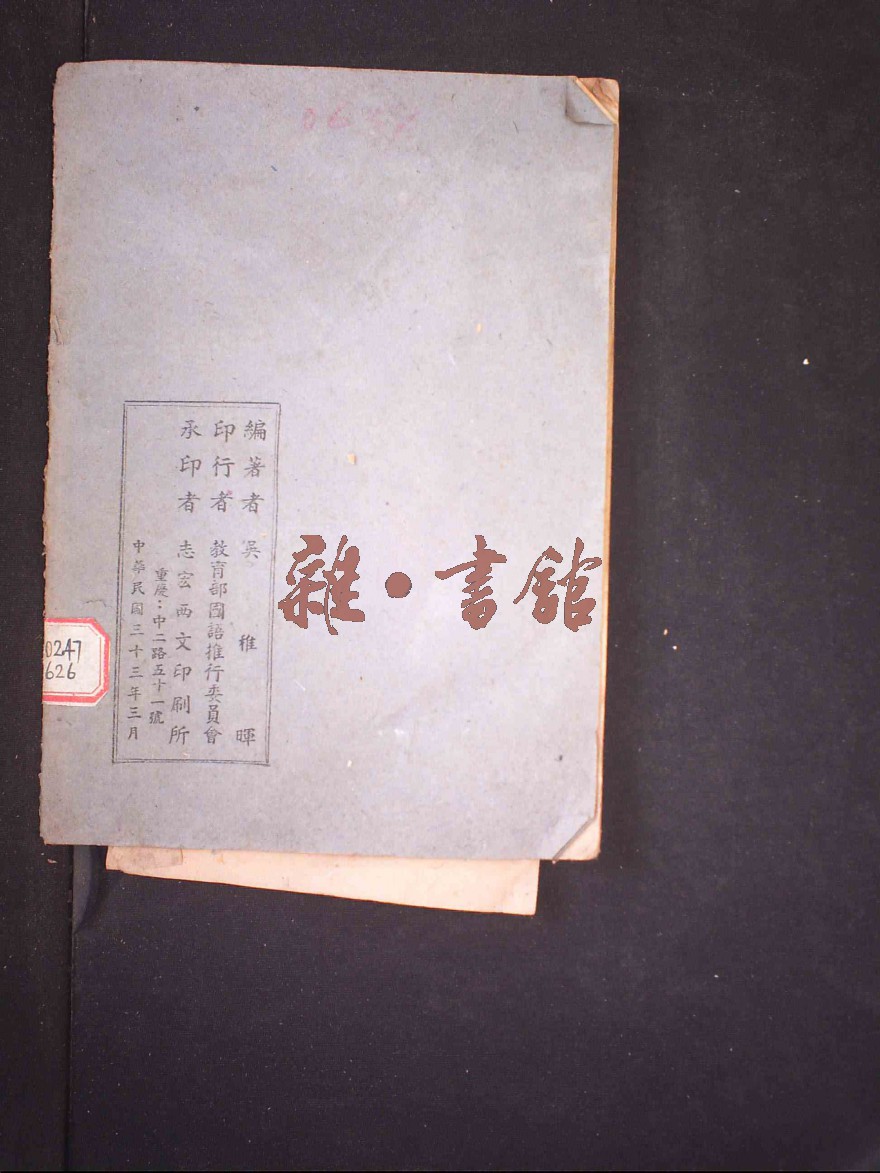 編著者 吳稚暉
印行者 教育部國語推行委員會
承印者 志宏西文印刷所
重慶：中二路五十一號
中華民國三十三年三月
雜·書館
0247
626